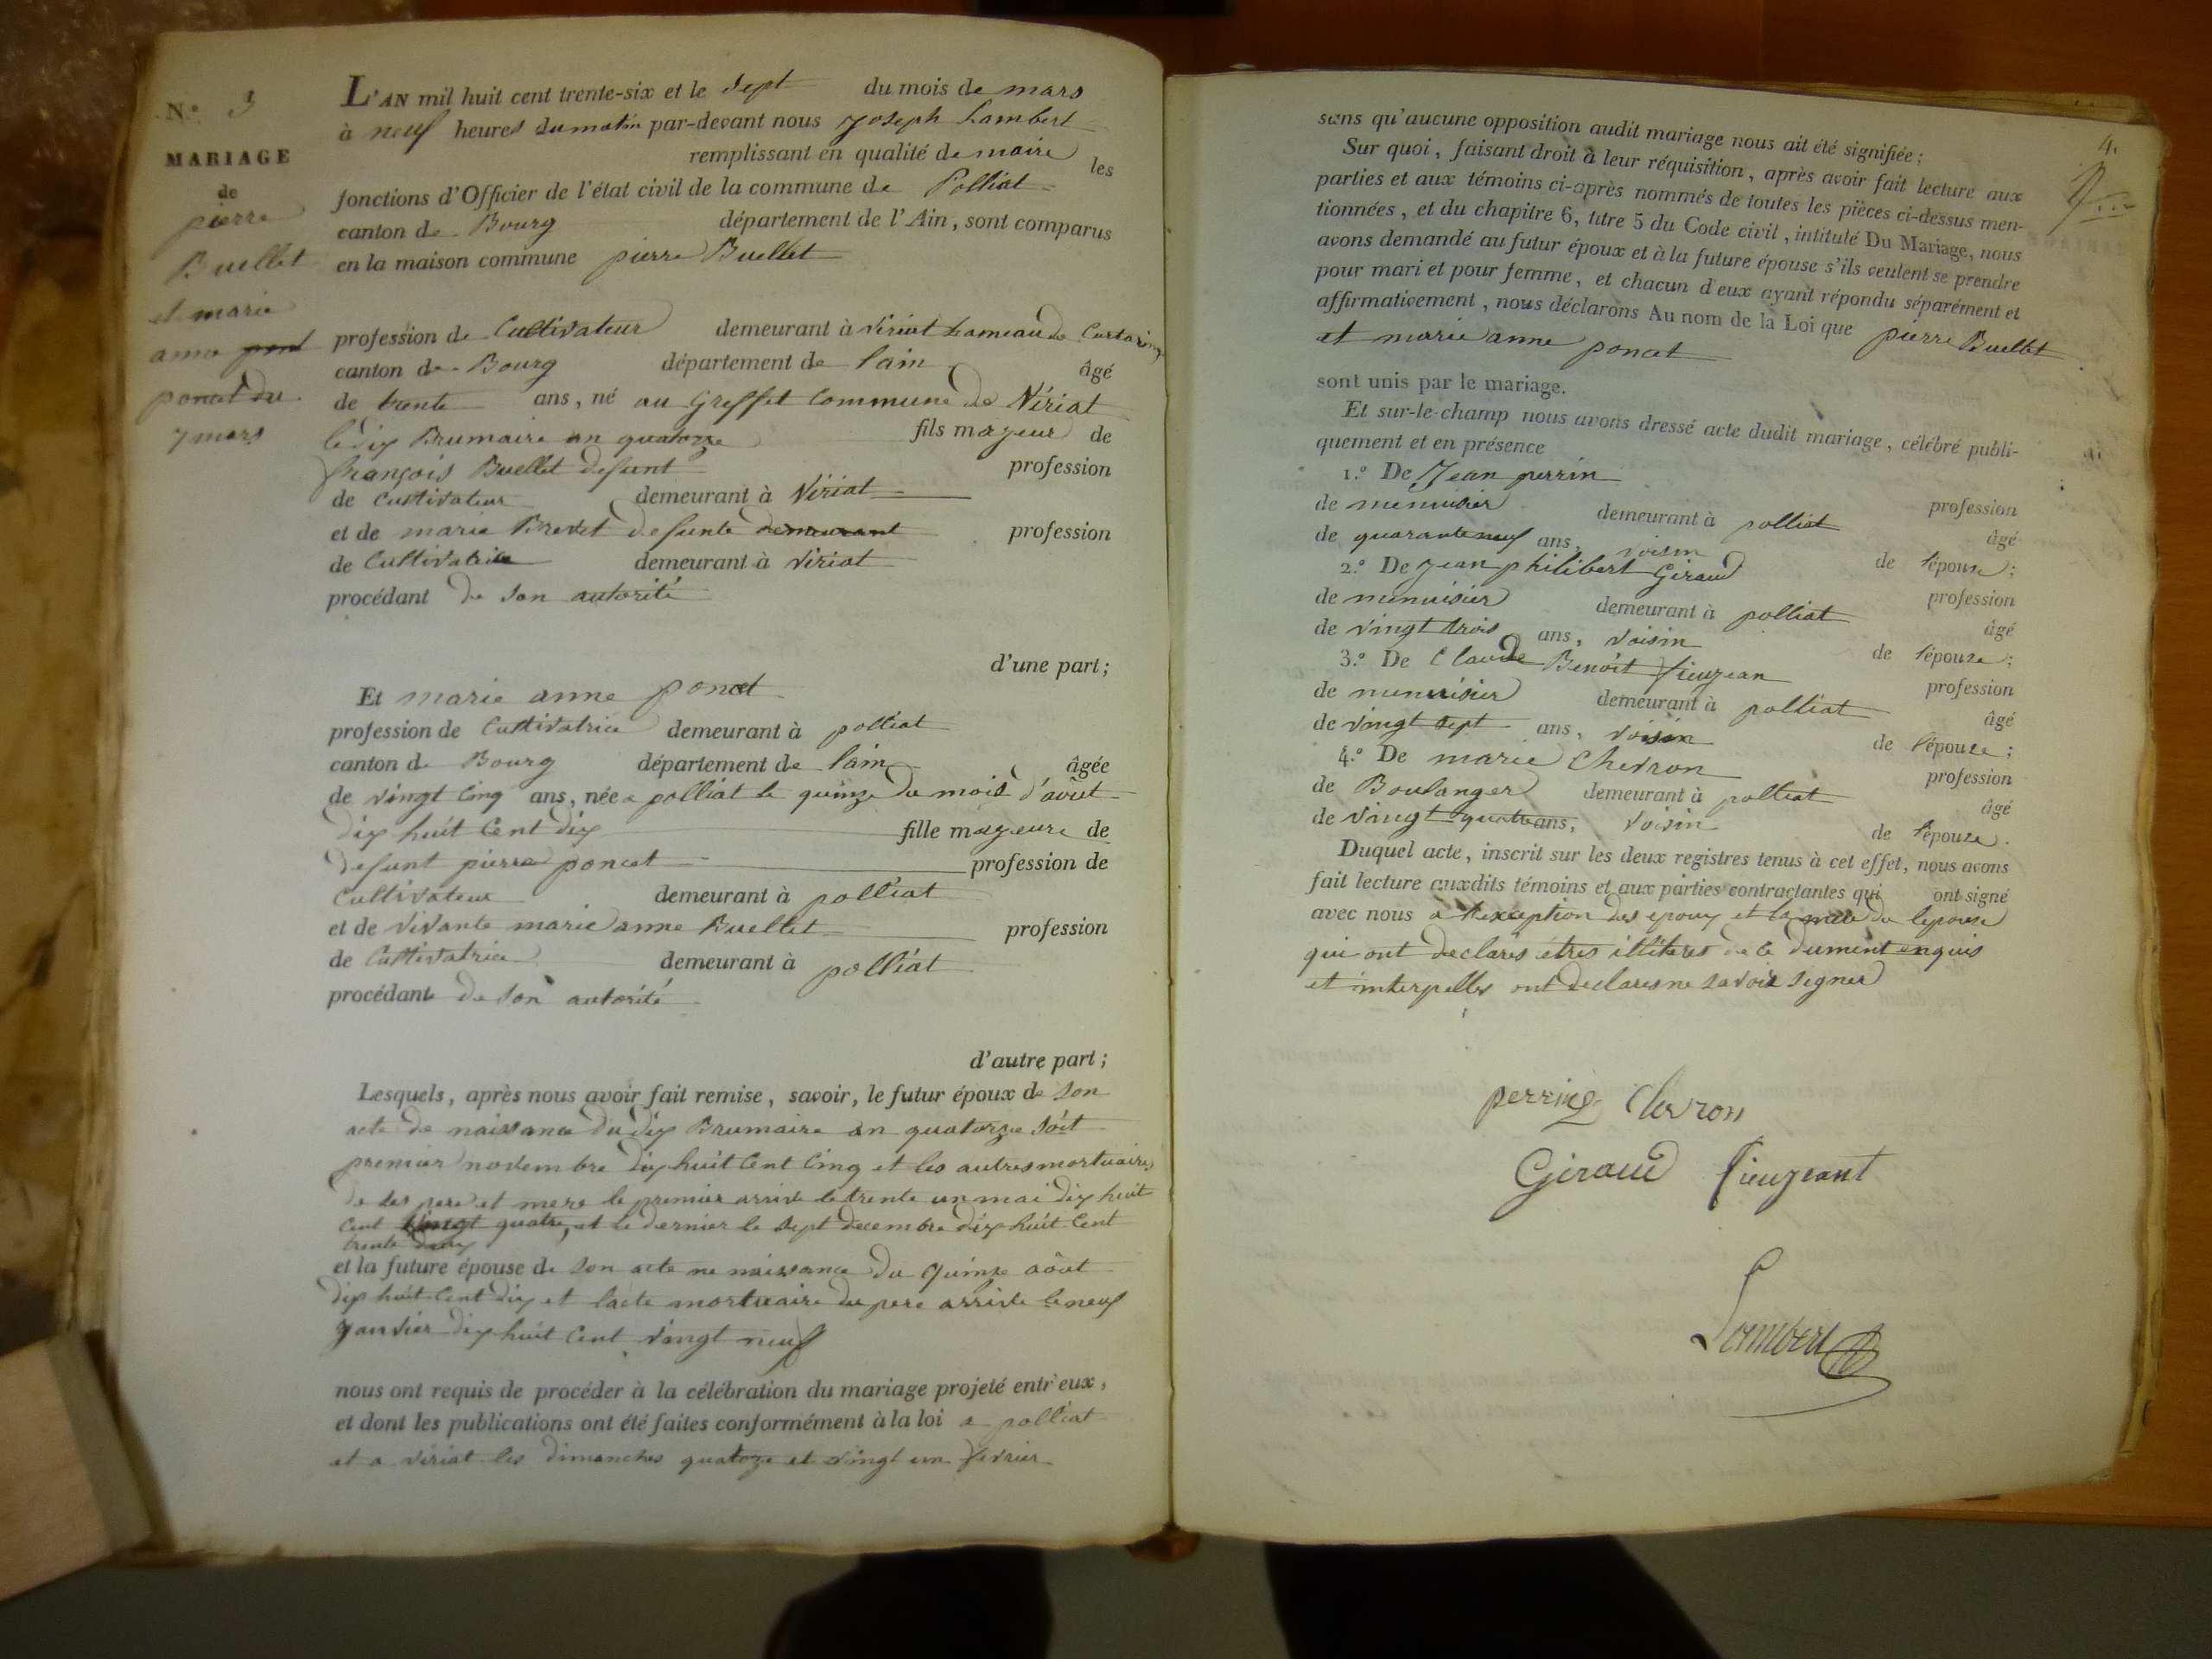 N.º 3
MARIAGE
de
pierre
Buellet
et marie
anne pont
poncet du
7 mars
L'AN mil huit cent trente-six et le sept du mois de mars
à neuf heures du matin par-devant nous Joseph Lambert
remplissant en qualité de maire les
fonctions d'Officier de l'état civil de la commune de Polliat
canton de Bourg département de l'Ain, sont comparus
en la maison commune pierre Buellet
profession de Cultivateur demeurant à Viriat hameau de
canton de Bourg département de lain âgé
de trente ans, né au Greffet Commune de Viriat
le dix Brumaire an quatorze fils mageur de
françois Buellet defunt profession
de Cultivateur demeurant à Viriat
et de marie Brevet defunte demeurant profession
de Cultivatrice demeurant à Viriat
procédant de son autorité
d'une part;
Et marie anne poncet
profession de Cultivatrice demeurant à polliat
canton de Bourg département de lain âgée
de vingt cinq ans, née a polliat le quinze du mois d'août
dix huit cent dix fille mageure de
defunt pierre poncet profession de
Cultivateur demeurant à polliat
et de vivante marie anne Buellet profession
de Cultivatrice demeurant à polliat
procédant de son autorité
d'autre part;
Lesquels, après nous avoir fait remise, savoir, le futur époux de son
acte de naissance du dix Brumaire an quatorze soit
premier novembre dix huit cent cinq et les autres mortuaires
de ses pere et mere le premier arrivé le trente un mai dix huit
cent vingt quatre, et le dernier le sept decembre dix huit cent
trente deux
et la future épouse de son acte ne naissance du quinze aôut
dix huit cent dix et lacte mortuaire du pere arrivé le neuf
janvier dix huit cent vingt neuf
nous ont requis de procéder à la célébration du mariage projeté entr'eux,
et dont les publications ont été faites conformément à la loi a polliat
et a viriat les dimanches quatoze et vingt un fevrier
4.
sans qu'aucune opposition audit mariage nous ait été signifiée;
Sur quoi, faisant droit à leur réquisition, après avoir fait lecture aux
parties et aux témoins ci-après nommés de toutes les pièces ci-dessus men-
tionnées, et du chapitre 6, titre 5 du Code civil, intitulé Du Mariage, nous
avons demandé au futur époux et à la future épouse s'ils veulent se prendre
pour mari et pour femme, et chacun d'eux ayant répondu séparément et
affirmativement, nous déclarons Au nom de la Loi que pierre Buellet
et marie anne poncet
sont unis par le mariage.
Et sur-le-champ nous avons dressé acte dudit mariage, célébré publi-
quement et en présence
1.º De Jean perrin profession
de menuisier demeurant à polliat âgé
de quarante neuf ans, voisin de l'épouse;
2.º De Jean philibert Giraud profession
de menuisier demeurant à polliat âgé
de vingt trois ans, voisin de l'épouse;
3.º De Claude Benoit fieugean profession
de menuisier demeurant à polliat âgé
de vingt sept ans, voisin de l'épouse;
4.º De marie Chevron profession
de Boulanger demeurant à polliat âgé
de vingt quatre ans, voisin de l'épouse.
Duquel acte, inscrit sur les deux registres tenus à cet effet, nous avons
fait lecture auxdits témoins et aux parties contractantes qui ont signé
avec nous a l'exception des epoux et la mere de lepouse
qui ont declarés etres illiteres de ce dument enquis
et interpellés ont declares ne savoir signer
perrin Chevron
Giraud fieugeant
Lambert